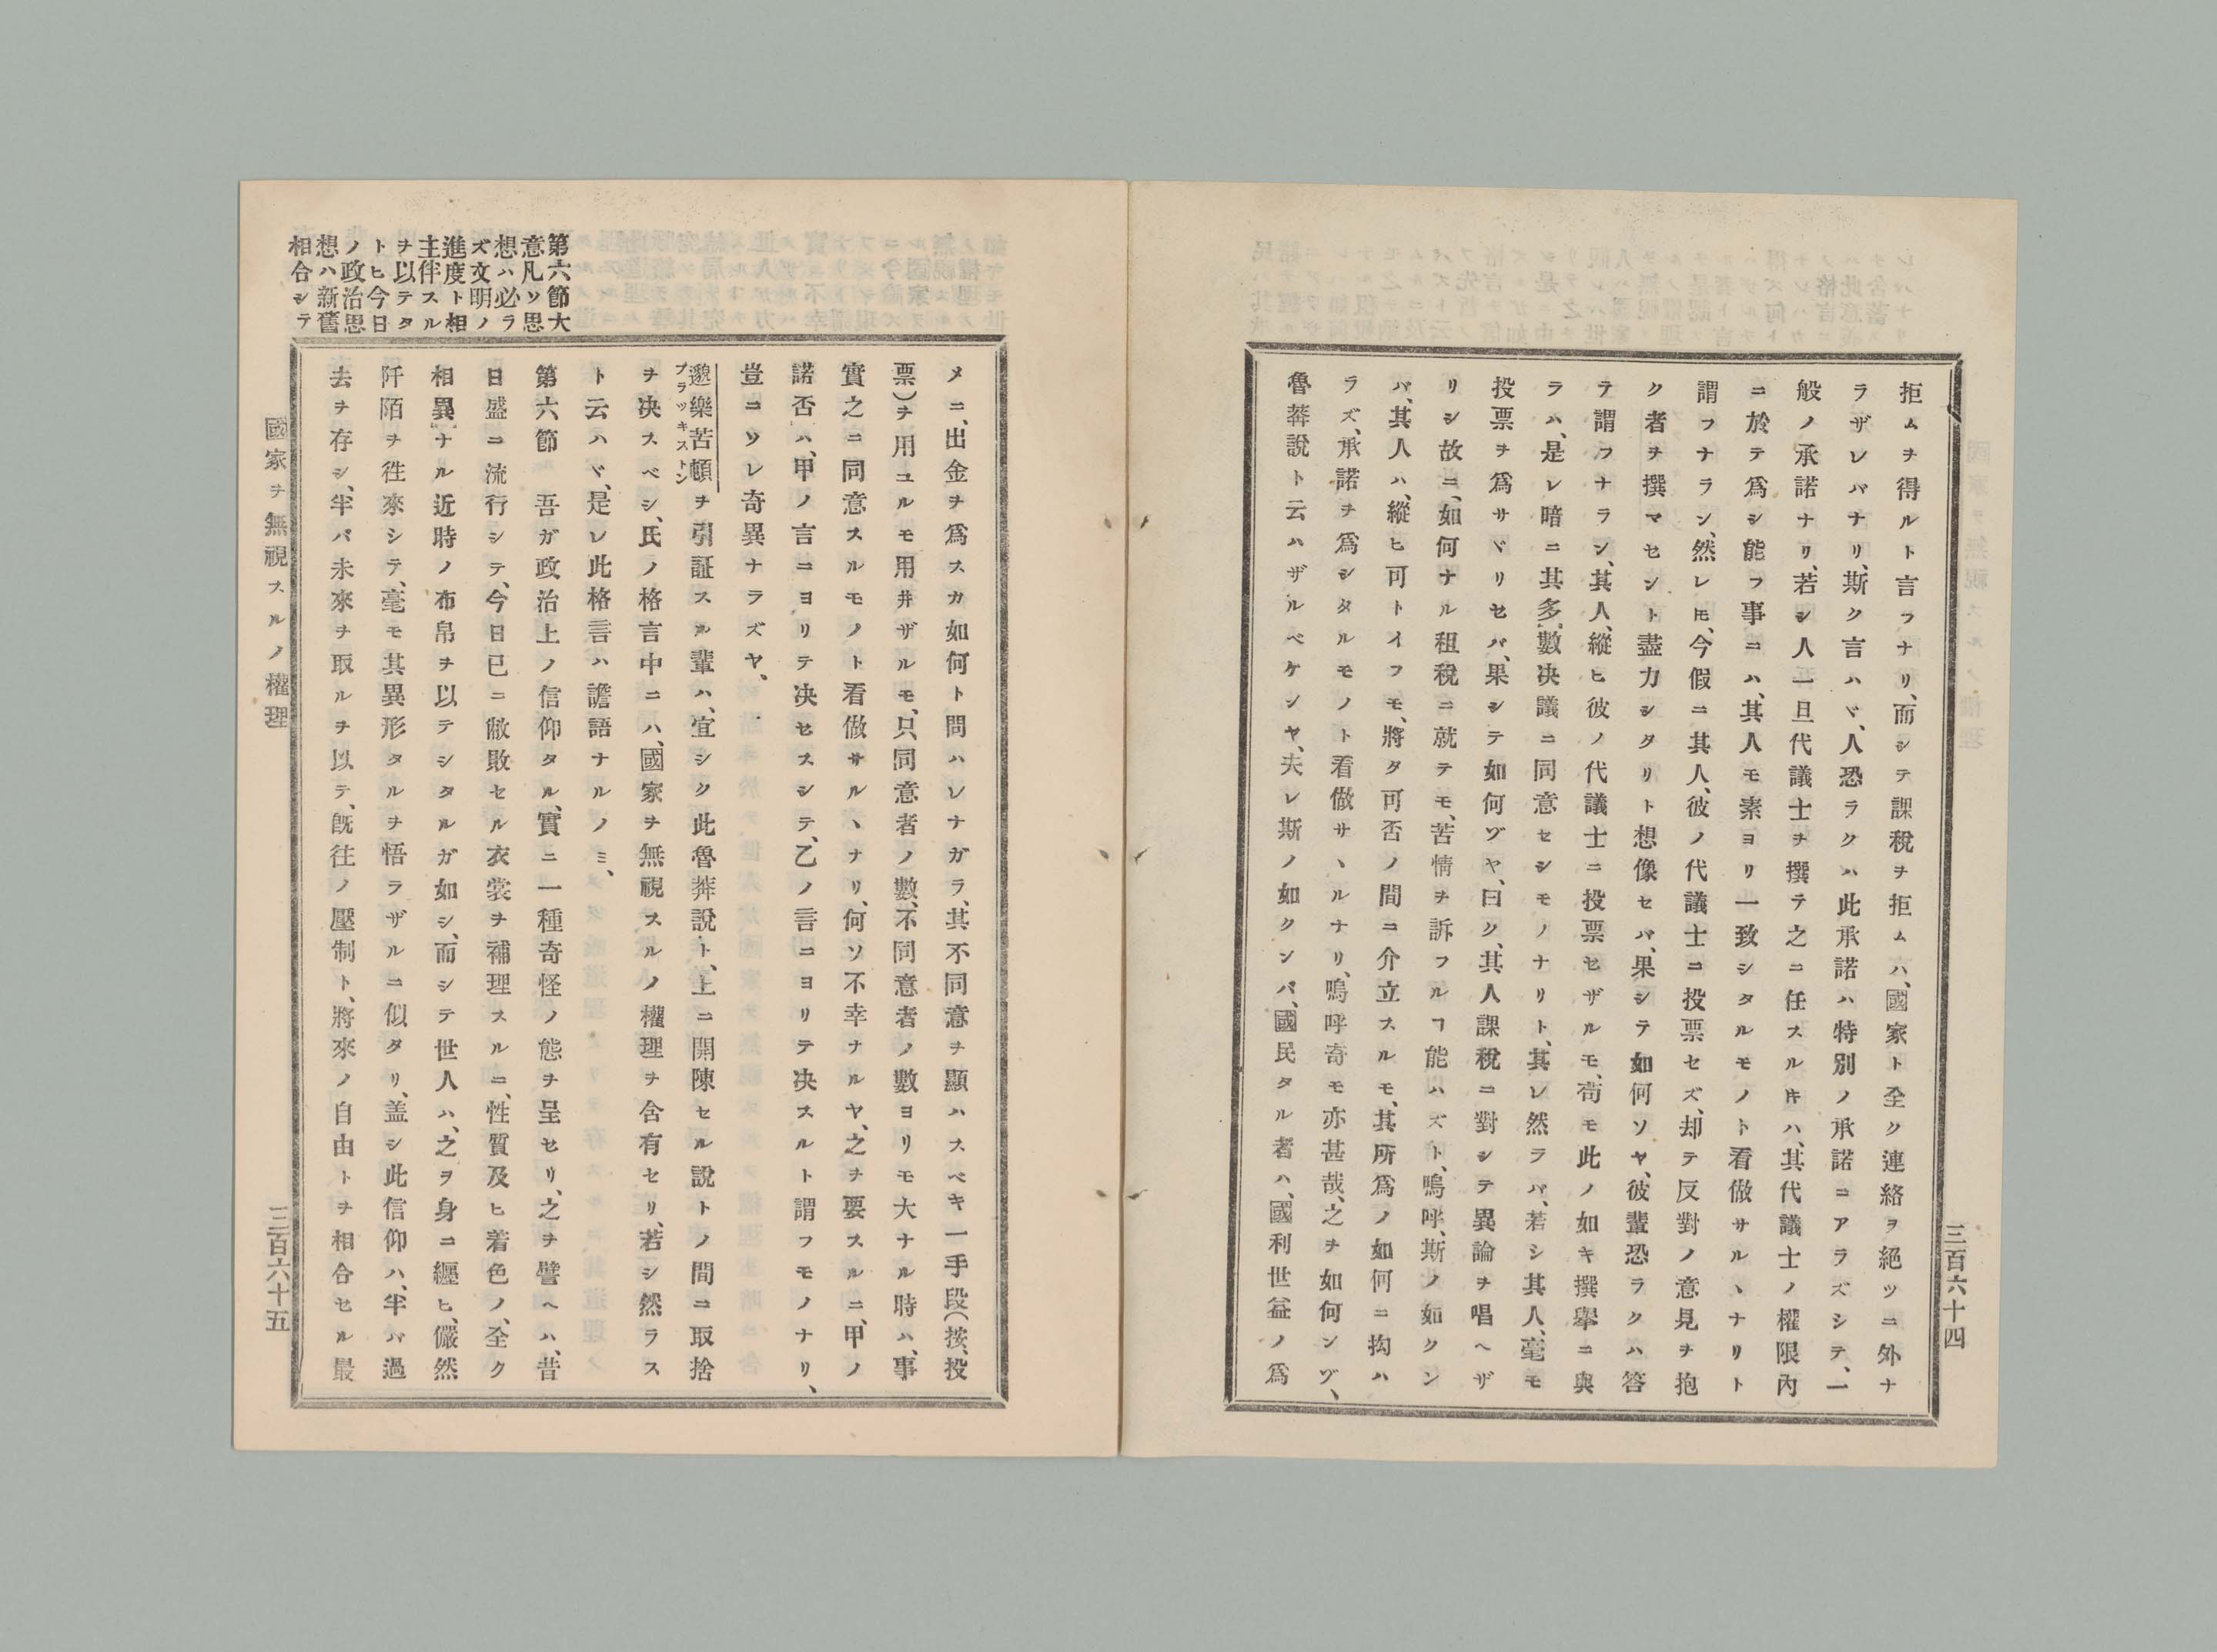 三百六十四
拒ムヲ得ルト言フナリ、而シテ課稅ヲ拒ムハ、國家ト全ク連絡ヲ絕ツニ外ナ
ラザレバナリ、斯ク言ハヾ、人恐ラクハ此承諾ハ特別ノ承諾ニアラズシテ、一
般ノ承諾ナリ、若シ人一旦代議士ヲ撰テ之ニ任スルキハ、其代議士ノ權限內
ニ於テ爲シ能フ事ニハ、其人モ素ヨリ一致シタルモノト看做サルヽナリト
謂フナラン、然レ𪜈、今假ニ其人、彼ノ代議士ニ投票セズ、却テ反對ノ意見ヲ抱
ク者ヲ撰マセント盡力シタリト想像セバ、果シテ如何ソヤ、彼輩恐ラクハ答
テ謂フナラン、其人、縱ヒ彼ノ代議士ニ投票セザルモ、苟モ此ノ如キ撰擧ニ與
ラハ、是レ暗ニ其多數決議ニ同意セシモノナリト、其レ然ラバ、若シ其人、毫モ
投票ヲ爲サヾリセバ、果シテ如何ヅヤ、曰ク、其人課稅ニ對シテ異論ヲ唱ヘザ
リシ故ニ、如何ナル租稅ニ就テモ、苦情ヲ訴フルヿ能ハズト、嗚呼、斯ノ如クン
バ、其人ハ、縱ヒ可トイフモ、將タ可否ノ間ニ介立スルモ、其所爲ノ如何ニ拘ハ
ラズ、承諾ヲ爲シタルモノト看做サヽルナリ、嗚呼奇モ亦甚哉、之ヲ如何ンヅ、
魯莽說ト云ハザルベケンヤ、夫レ斯ノ如クンバ、國民タル者ハ、國利世益ノ爲
メニ、出金ヲ爲スカ如何ト問ハレナガラ、其不同意ヲ顯ハスベキ一手段(按、投
票)ヲ用ユルモ用井ザルモ、只同意者ノ數、不同意者ノ數ヨリモ大ナル時ハ、事
實之ニ同意スルモノト看做サルヽナリ、何ソ不幸ナルヤ、之ヲ要スルニ、甲ノ
諾否ハ、甲ノ言ニヨリテ决セスシテ、乙ノ言ニヨリテ决スルト謂フモノナリ、
豈ニソレ奇異ナラズヤ、
邈樂苦頓ヲ引証スル輩ハ、宜シク此魯莽說ト、上ニ開陳セル說トノ間ニ取捨
ブラッキストン
ヲ决スベシ、氏ノ格言中ニハ、國家ヲ無視スルノ權理ヲ含有セリ、若シ然ラス
ト云ハヾ、是レ此格言ハ譫語ナルノミ、
第六節 吾ガ政治上ノ信仰タル、實ニ一種奇怪ノ態ヲ呈セリ、之ヲ譬ヘハ、昔
日盛ニ流行シテ、今日已ニ敝敗セル衣裳ヲ補理スルニ、性質及ヒ着色ノ、全ク
相異ナル近時ノ布帛ヲ以テシタルガ如シ、而シテ世人ハ、之ヲ身ニ纒ヒ、儼然
阡陌ヲ徃來シテ、毫モ其異形タルヲ悟ラザルニ似タリ、盖シ此信仰ハ、半バ過
去ヲ存シ、半バ未來ヲ取ルヲ以テ、旣往ノ壓制ト、將來ノ自由トヲ相合セル最
第六節大
意凡ソ思
想ハ必ラ
ズ文明ノ
進度ト相
主伴スル
ヲ以テタ
トヒ今日
ノ政治思
想ハ新舊
相合シテ
國家ヲ無視スルノ權理
三百六十五